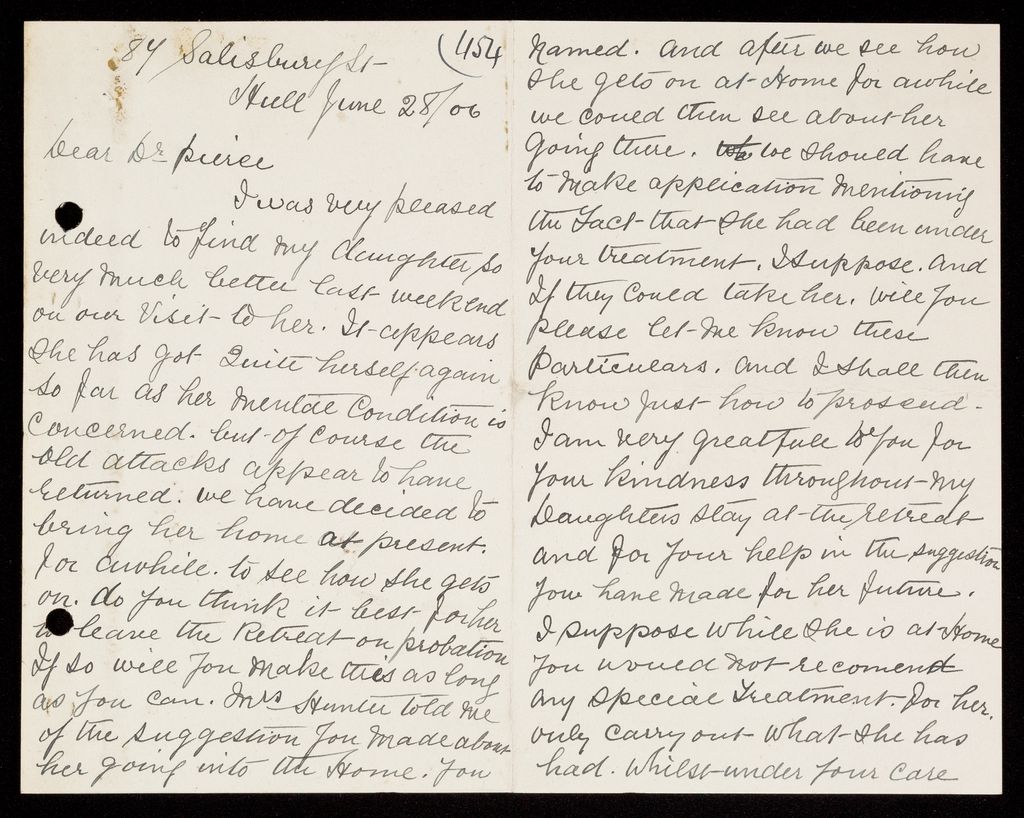 84 Salisbury St
(454
Hull June 28/06
Dear Dr Pierce
I was very pleased
indeed to find my daughter so
very much better last weekend
on our Visit to her. It appears
She has got Quite herself again
so far as her mental Condition is
Concerned. but of course the
old attacks appear to have
returned. we have decided to
bring her home at present.
for awhile. to see how she gets
on. do you think it best for her
to leave the Retreat on probation
If so will you make this as long
as you can. Mrs Hunter told me
of the suggestion you made about
her going into the Home. You
named. and after we see how
she gets on at Home for awhile
we could then see about her
Going there. we should have
to make application mentioning
the Fact that she had been under
your treatment, I suppose. and
If they could take her. will you
please let me know these
particulars. and I shall then
know just how to proseed.
I am very greatfull to you for
your kindness throughout my
Daughters stay at the Retreat
and for your help in the suggestion
you have made for her future.
I suppose while she is at Home
you would not recomend
any special Treatment. for her.
only carry out what she has
had. whilst under your care